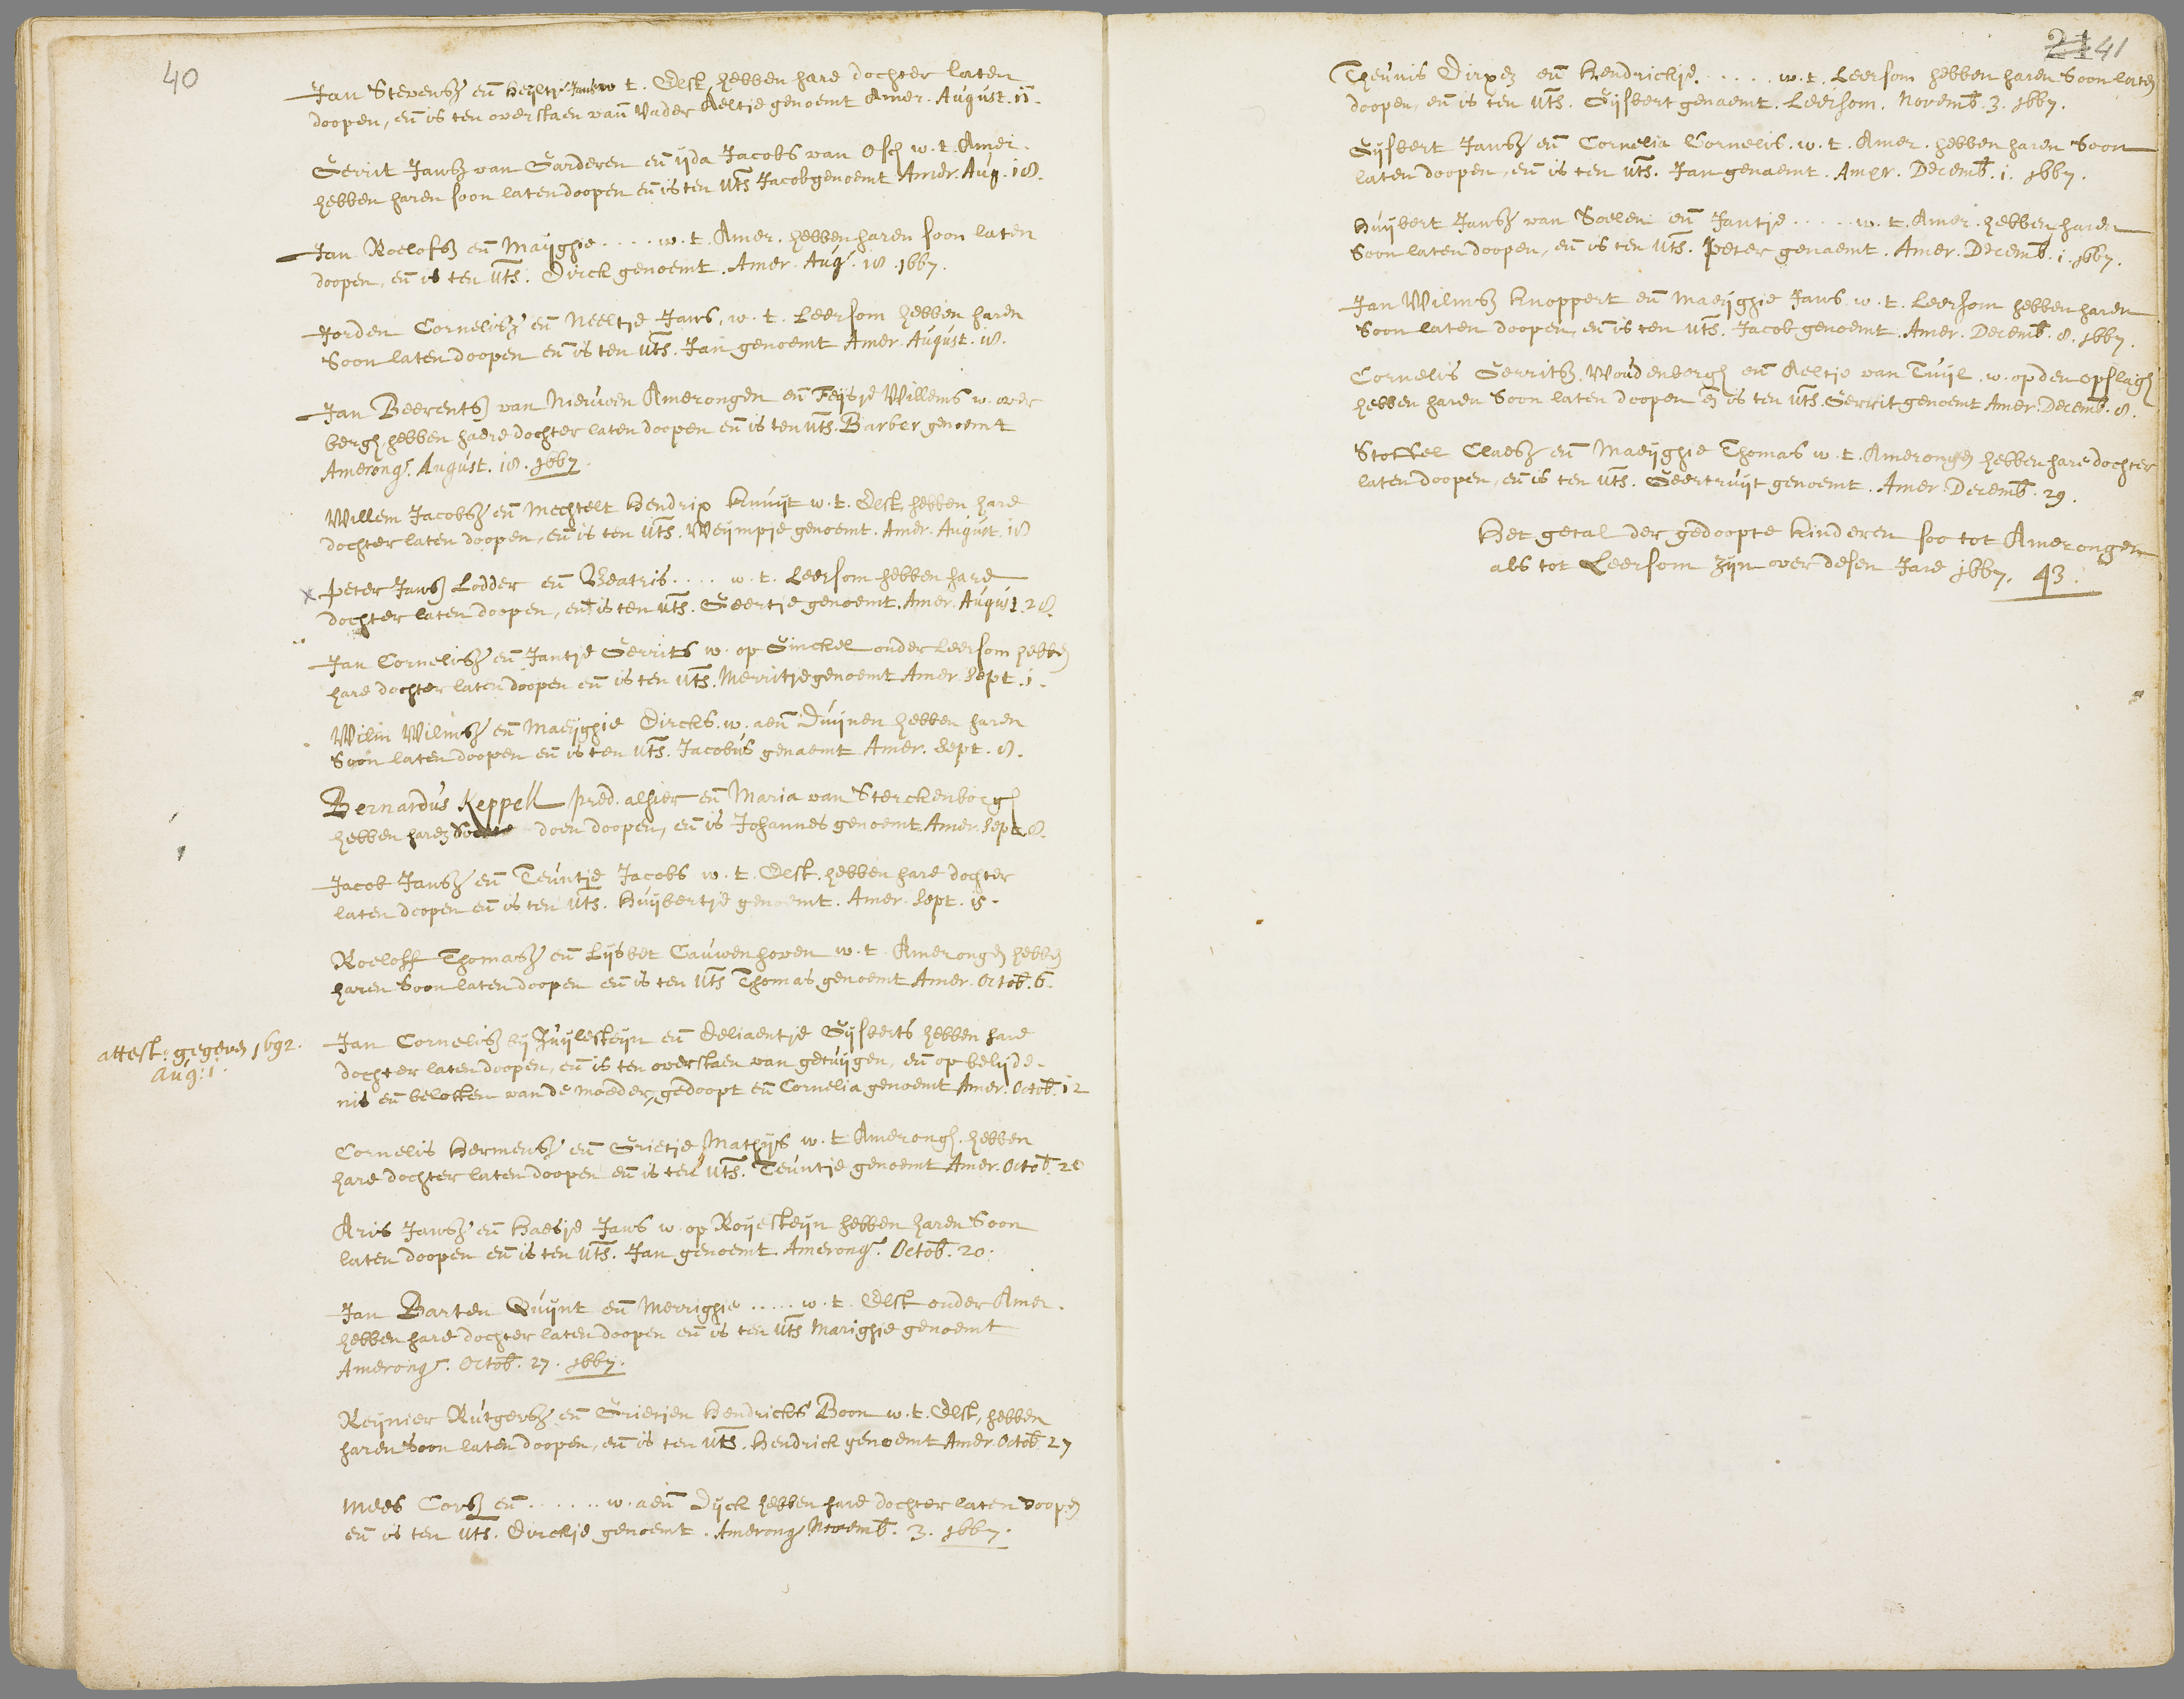 40
Jan Stevensz en Heijltje Jans w t. Elst, hebben hare dochter laten
doopen, en is ten overstaen van Vader Aeltje genoemt Amer. August. 11.
Gerrit Jansz van Garderen en ijda Jacobs van Osch w. t. Amer.
hebben haren soon laten doopen en is ten uts Jacob genoemt Amer. Aug. 18.
Jan Roelofsz en Maijghie .... w. t. Amer. hebben haren soon laten
doopen, en is ten uts. Dirck genoemt. Amer. Aug. 18. 1667.
Jorden Cornelisz en Neeltje Jans, w. t. Leersom hebben haren
Soon laten doopen en is ten uts. Jan genoemt Amer. August. 18.
Jan Beerentsz van Nieuwen Amerongen en Feijsje Willems w. over
bergh, hebben haere dochter laten doopen en is ten uts. Barber genoemt
Amerong. August. 18. 1667.
Willem Jacobsz en Mechtelt Hendrix Knuijt w. t. Elst, hebben hare
dochter laten doopen, en is ten uts. Weijmpje genoemt. Amer. August. 18
x Peter Jansz Lodder en Beatris .... w. t. Leersom hebben hare
dochter laten doopen, en is ten uts. Geertje genoemt. Amer. August. 28.
Jan Cornelisz en Jantje Gerrits w. op Ginckel onder Leersom hebben
hare dochter laten doopen en is ten uts. Merritje genoemt Amer. Sept. 1.
Wilm Wilmsz en Maeijghie Dircks. w. aen Duijnen hebben haren
Soon laten doopen en is ten uts. Jacobus genaemt Amer. Sept. 8.
Bernardus Keppell pred. alhier en Maria van Sterckenborgh
hebben haren doen doopen, en is Johannes genoemt Amer. Sept 8.
Jacob Jansz en Teuntje Jacobs w. t. Elst. hebben hare dochter
laten doopen en is ten uts. Huijbertje genoemt. Amer. Sept. 15.
Roeloff Thomasz en Lijsbet Cauwenhoven w. t. Amerongen hebben
haren Soon laten doopen en is ten uts Thomas genoemt Amer. Octob. 6.
attest: gegeven 1692.
Aug: 1.
Jan Cornelisz bij Zuijlesteijn en Eeliaentje Gijsberts hebben hare
dochter laten doopen, en is ten overstaen van getuijgen, en op belijde-
nis en beloften van de moeder, gedoopt en Cornelia genoemt Amer. Octob. 12
Cornelis Hermensz en Grietje Mathijs w. t Amerong. hebben
hare dochter laten doopen en is ten uts. Teuntje genoemt Amer. Octob. 20
Aris Jansz en Haesje Jans w. op Roijesteijn hebben haren Soon
laten doopen en is ten uts. Jan genoemt. Amerong. Octob. 20.
Jan Barten Quijnt en Merrighie ..... w. t. Elst onder Amer.
hebben hare dochter laten doopen en is ten uts Marighie genoemt
Amerong. Octob. 27. 1667.
Reijnier Rutgersz en Grietjen Hendricks Boon w. t. Elst, hebben
haren Soon laten doopen, en is ten uts. Hendrick genoemt Amer. Octob. 27
Mees Corsz en ...... w. aen Dijck hebben hare dochter laten doopen
en is ten uts. Dirckje genoemt. Amerong. Novemb. 3. 1667.
21 41
Theunis Dirxen en Hendrickje ..... w. t. Leersom hebben haren Soon laten
doopen, en is ten uts. Gijsbert genaemt. Leersom. Novemb. 3. 1667.
Gijsbert Jansz en Cornelia Cornelis. w. t. Amer. hebben haren Soon
laten doopen, en is ten uts. Jan genaemt. Amer. Decemb. 1. 1667.
Huijbert Jansz van Soelen en Jantje ..... w. t. Amer. hebben haren
Soon laten doopen, en is ten uts. Peter genaemt. Amer. Decemb. 1. 1667.
Jan Wilmsz Knoppert en Maeijghie Jans w. t. Leersom hebben haren
Soon laten doopen, en is ten uts. Jacob genoemt. Amer. Decemb. 8. 1667.
Cornelis Gerritsz. Woudenbergh en Aeltje van Tuijl. w. op den opslagh
hebben haren Soon laten doopen en is ten uts. Gerrit genoemt Amer. Decemb. 8.
Stoffel Claesz en Maeijghie Thomas w. t. Amerongen hebben hare dochter
laten doopen, en is ten uts. Geertruijt genoemt. Amer. Decemb. 29.
Het getal der gedoopte kinderen soo tot Amerongen
als tot Leersom zijn over desen Jare 1667, 43.